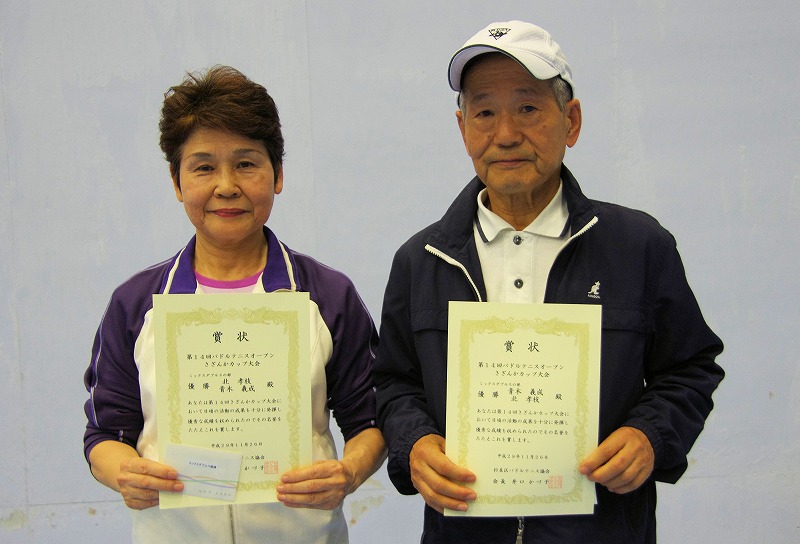 賞状
第14回パドルテニスオープン
さざんかカップ大会
ミックスダブルスの部
優勝 北 孝枝
青木 義成 殿
あなたは第14回さざんかカップ大会に
おいて日頃の活動の成果を十分に発揮し
優秀な成績を収められたのでその名誉を
たたえこれを賞します。
平成29年11月26日
ニス協会
かづ子
賞状
第14回パドルテニスオープン
さざんかカップ大会
ミックスダブルスの部
優勝 青木 義成
北 孝枝 殿
あなたは第14回さざんかカップ大会に
おいて日頃の活動の成果を十分に発揮し
優秀な成績を収められたのでその名誉を
たたえこれを賞します。
平成29年11月26日
杉並区パドルテニス協会
会長 井口 かづ子
KANGOL